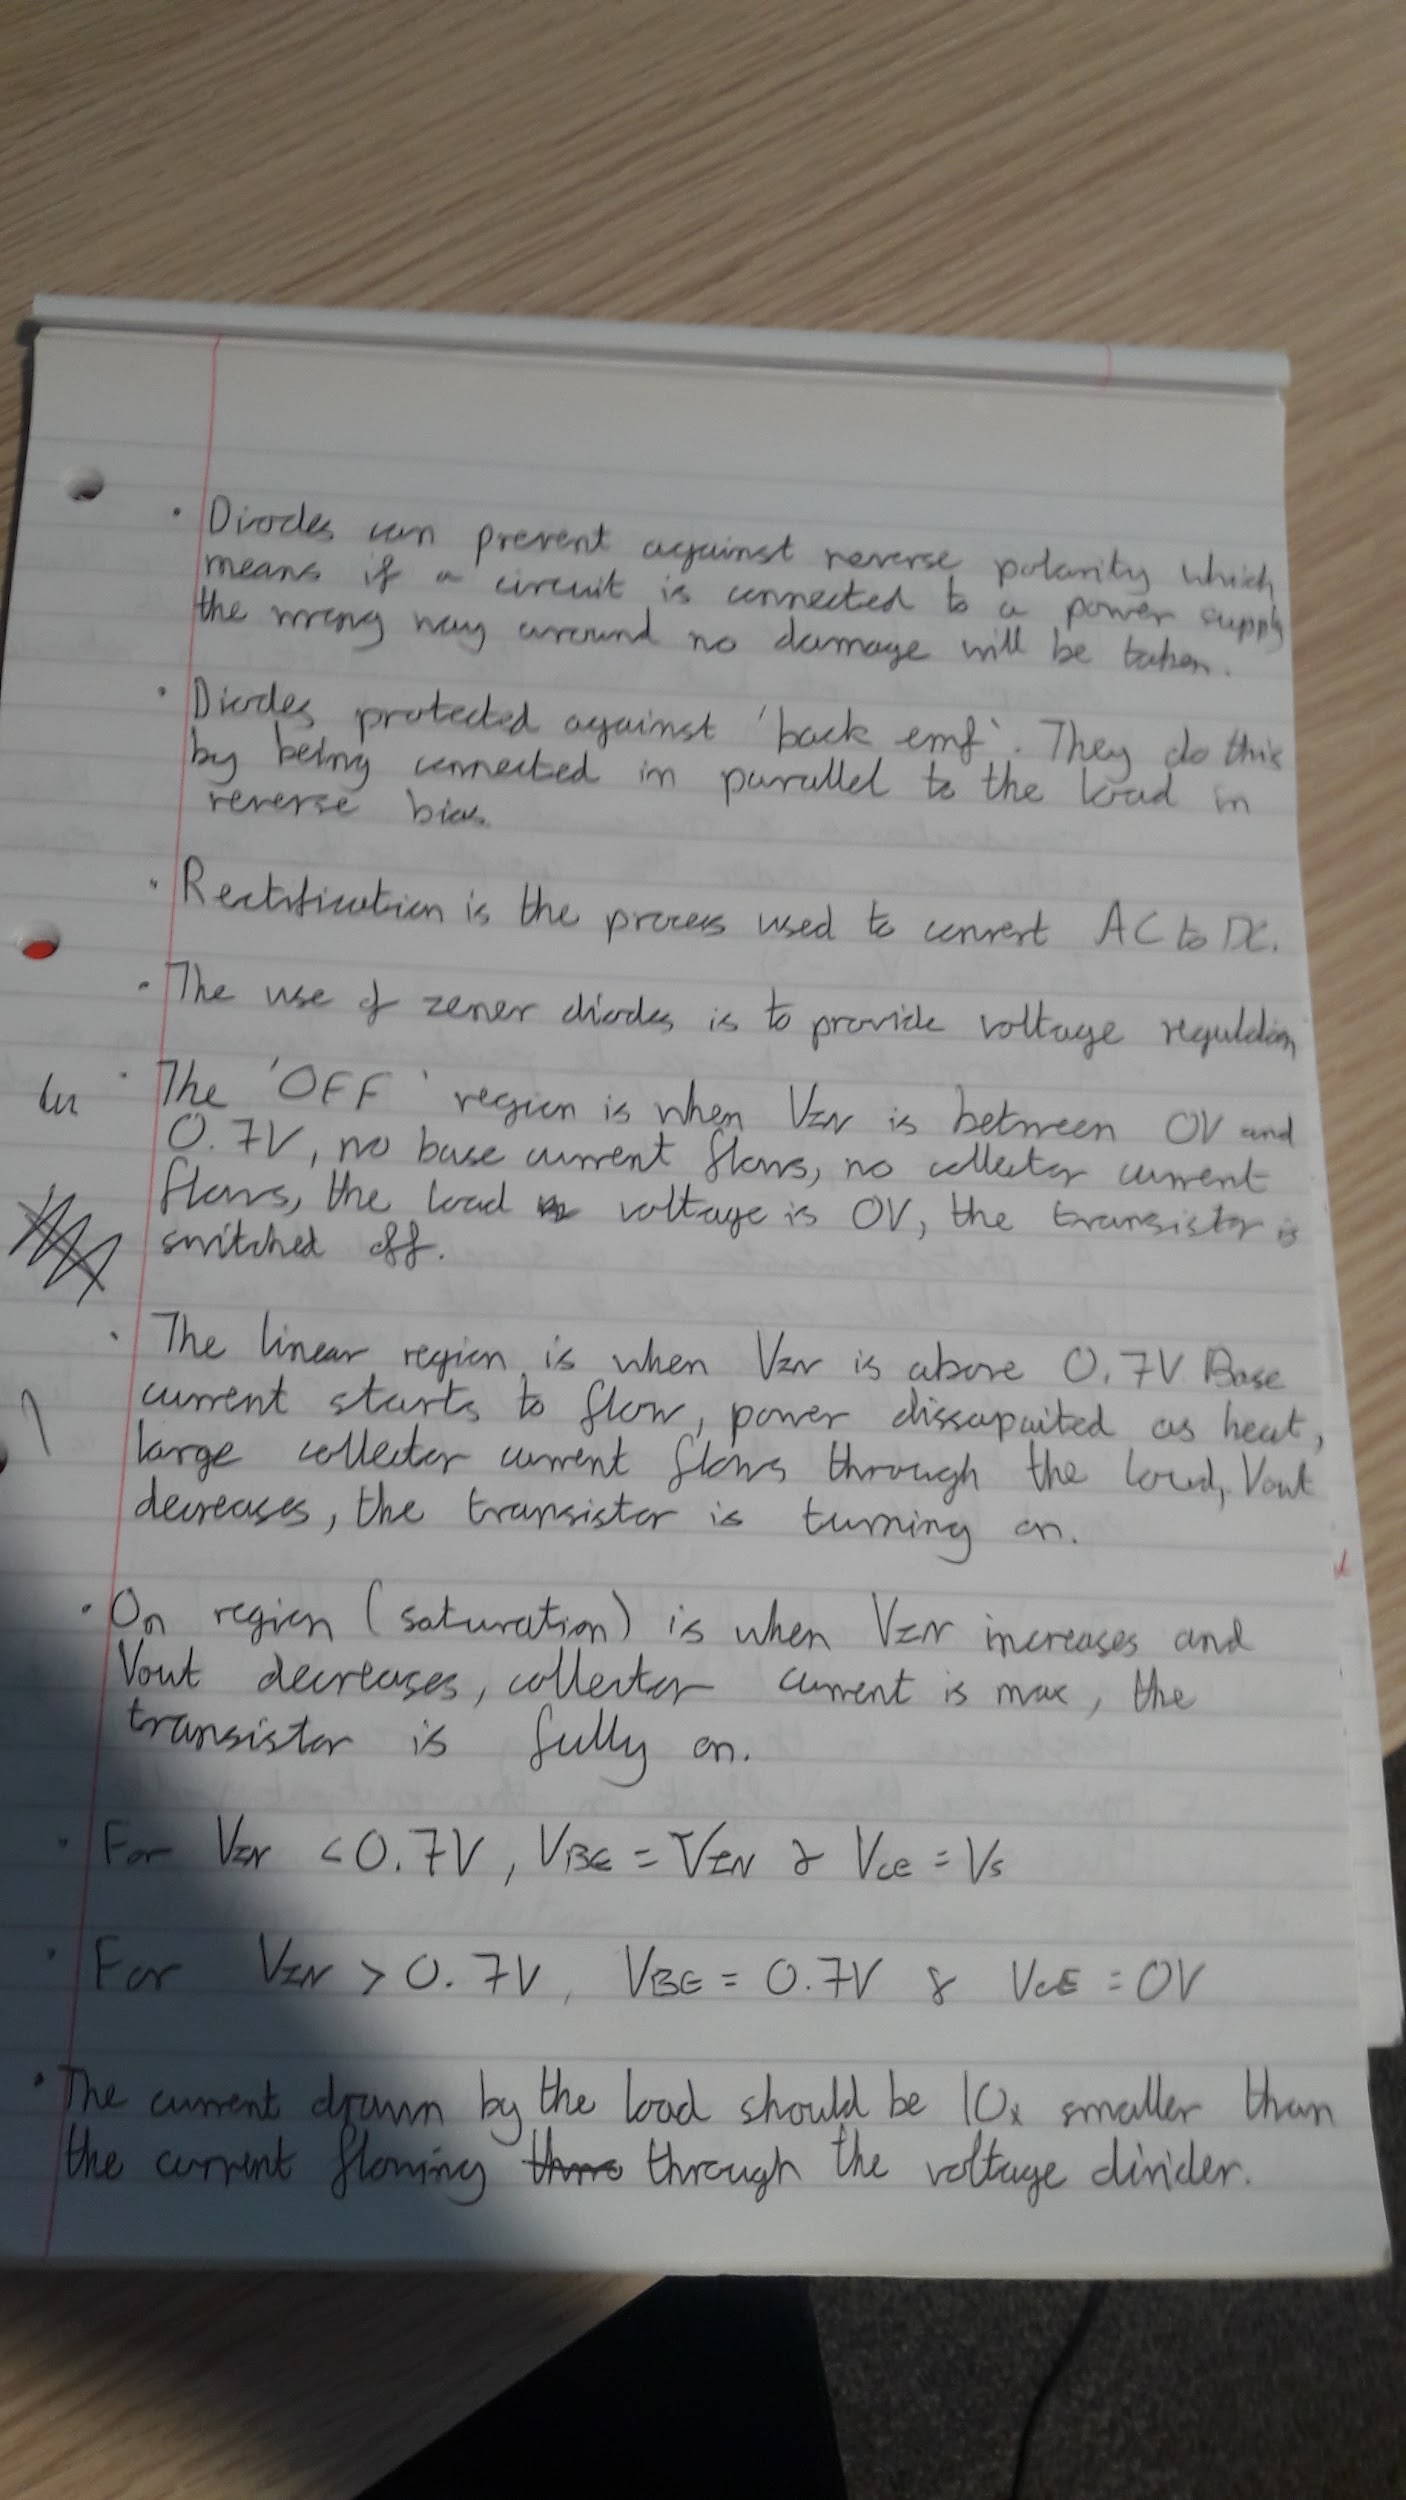 · Diodes can prevent against reverse polarity which
means if a circuit is connected to a power supply
the wrong way around no damage will be taken.
· Diodes protected against 'back emf'. They do this
by being connected in parallel to the load in
reverse bias.
· Rectification is the process used to convert AC to DC.
· The use of zener diodes is to provide voltage regulation
· The 'OFF' region is when VIN is between 0V and
0.7V, no base current flows, no collector current
flows, the load voltage is 0V, the transistor is
switched off.
· The linear region is when VIN is above 0.7V Base
current starts to flow, power dissapaited as heat,
large collector current flows through the load, Vout
decreases, the transistor is turning on.
· On region (saturation) is when VIN increases and
Vout decreases, collector current is max, the
transistor is fully on.
· For VIN < 0.7V, VBE = VIN & VCE = Vs
· For VIN > 0.7V, VBE = 0.7V & VCE = 0V
· The current drawn by the load should be 10x smaller than
the current flowing through the voltage divider.